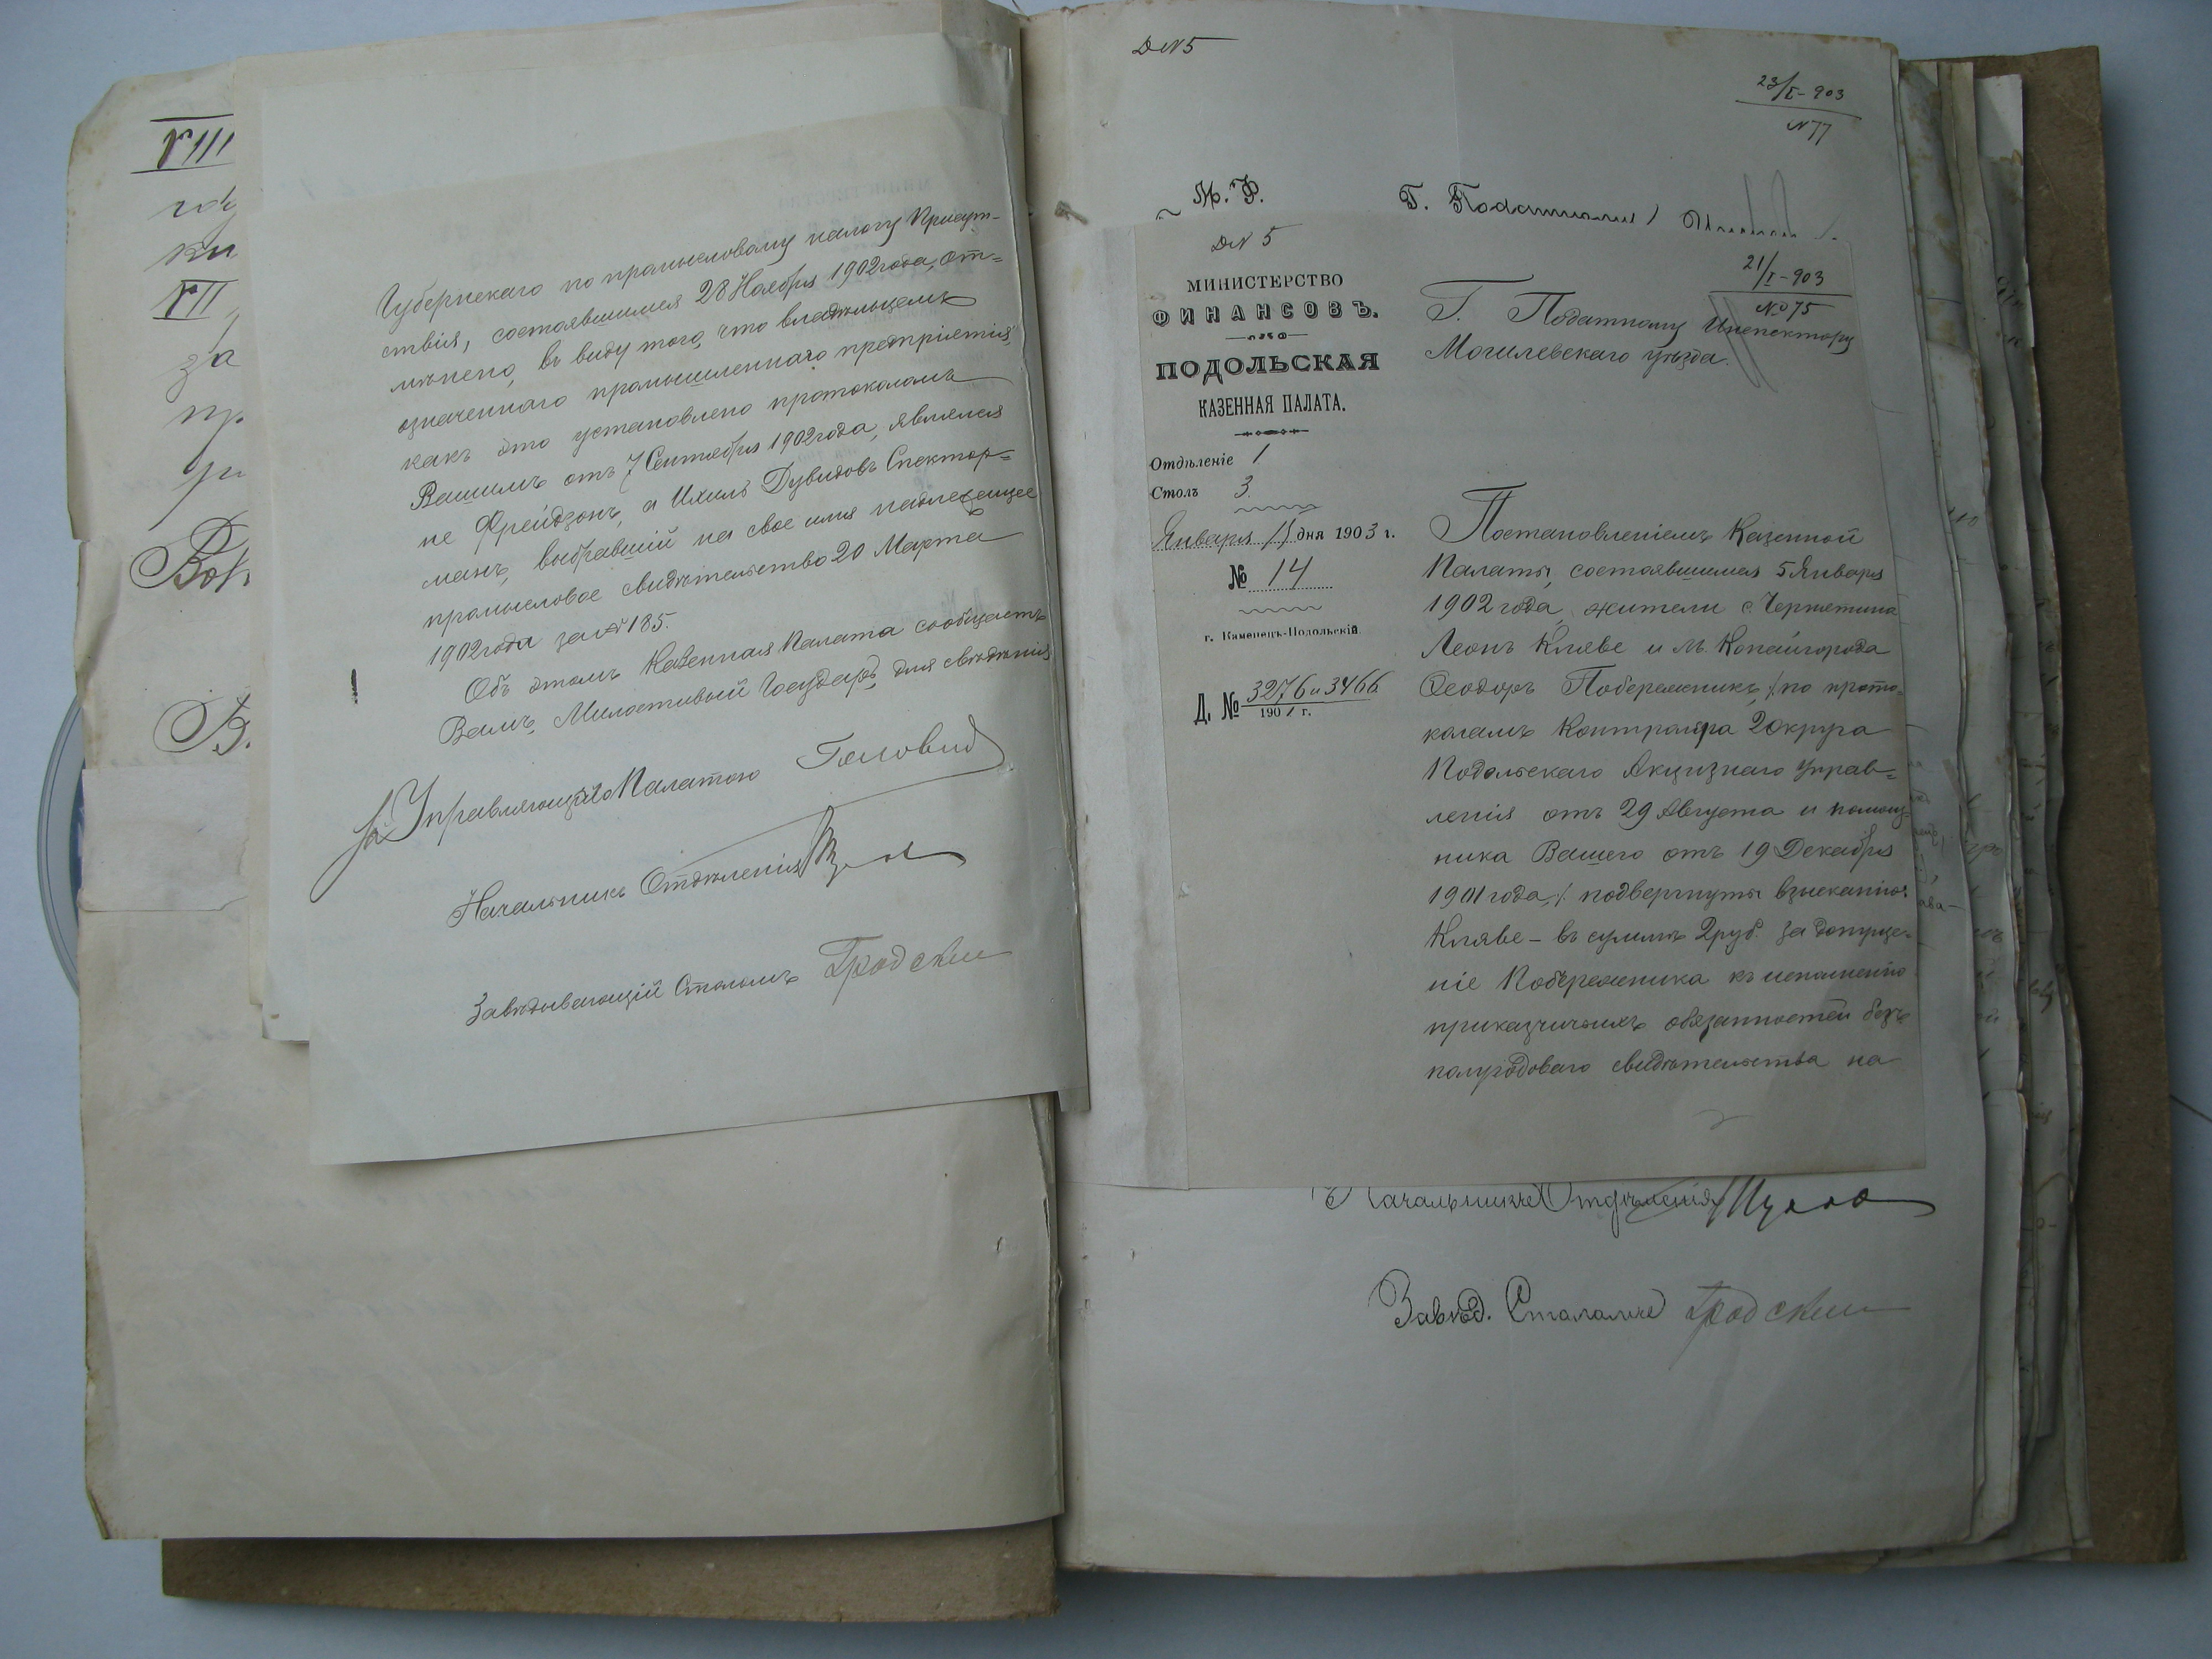 VIII
VII
за
Губернскаго по промысловому налогу Присут-
ствія, состоявшимся 28 Ноября 1902 года, от=
мѣнено, въ виду того, что владѣльцемъ
означеннаго промышленнаго предпріятія,
какъ это установлено протоколомъ
Вашимъ отъ 7 Сентября 1902 года, являлся
не Фрейдзонъ, а Ихиль Дувидовъ Спектор=
манъ, выбравшій на свое имя надлежащее
промысловое свидѣтельство 20 Марта
1902 года за № 185.
Объ этомъ Казенная Палата сообщаетъ
Вамъ, Милостивый Государь, для свѣдѣнія
За Управляющаго Палатою
Начальникъ Отдѣленія
Завѣдывающій Столомъ Гродскій
Д№5
23/I-903
№77
М. Ф.
Г. Податному
Д№ 5
МИНИСТЕРСТВО
ФИНАНСОВЪ.
ПОДОЛЬСКАЯ
КАЗЕННАЯ ПАЛАТА.
Отдѣленіе 1
Столъ 3.
Января 11 дня 1903 г.
№ 14
г. Каменецъ-Подольскій.
Д. № 3276 и 3466
1901 г.
21/I-903
№75
Г. Податному Инспектору
Могилевскаго уѣзда.
Постановленіемъ Казенной
Палаты, состоявшимся 5 Января
1902 года, жители с. Чернятина
Леонъ Кляве и м. Копайгорода
Ѳеодоръ Побережникъ, /по прото-
коламъ Контролера 2 округа
Подольскаго Акцизнаго Управ=
ленія отъ 29 Августа и помощ-
ника Вашего отъ 19 Декабря
1901 года,/ подвергнуты взысканію:
Кляве – въ суммѣ 2 руб. за допуще-
ніе Побережника къ исполненію
приказчичьихъ обязанностей безъ
полугодоваго свидѣтельства на
Начальникъ Отдѣленія
Завѣд. Столомъ Гродскій